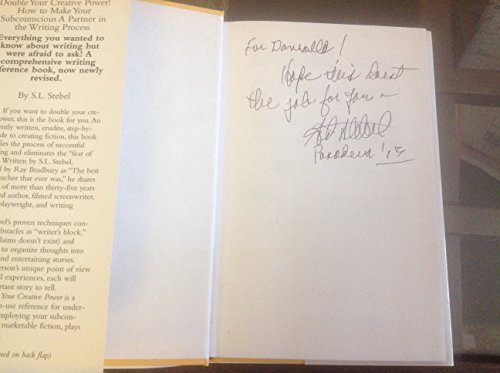 Double Your Creative Power!
How to Make Your
Subconscious A Partner in
the Writing Process
Everything you wanted to
know about writing but
were afraid to ask! A
comprehensive writing
ference book, now newly
revised.
By S.L. Stebel
If you want to double your cre-
power, this is the book for you. An
ently written, erudite, step-by-
de to creating fiction, this book
fies the process of successful
ng and eliminates the "fear of
Written by S.L. Stebel,
d by Ray Bradbury as "The best
eacher that ever was," he shares
of more than thirty-five years
ed author, filmed screenwriter,
playwright, and writing
bel's proven techniques con-
bstacles as "writer's block,"
laims doesn't exist) and
to organize thoughts into
nd entertaining stories.
erson's unique point of view
l experiences, each will
rtant story to tell.
Your Creative Power is a
o-use reference for under-
mploying your subcon-
marketable fiction, plays
ued on back flap)
For
Hope this
the job for you ~
Stebel
Pasadena '13